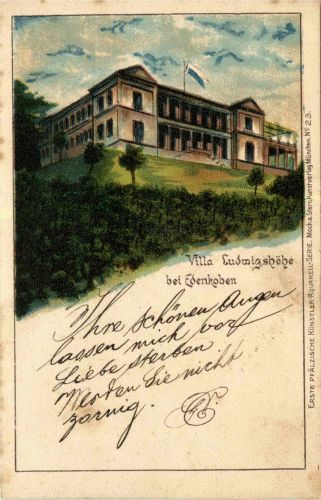 Villa Ludwigshöhe
bei Edenkoben
Ihre schönen Augen
lassen mich vor
Liebe sterben
Werden Sie nicht
zornig.
ERSTE PFÄLZISCHE KÜNSTLER-AQUARELL-SERIE. Moch & Stern, Kunstverlag München. No 23.